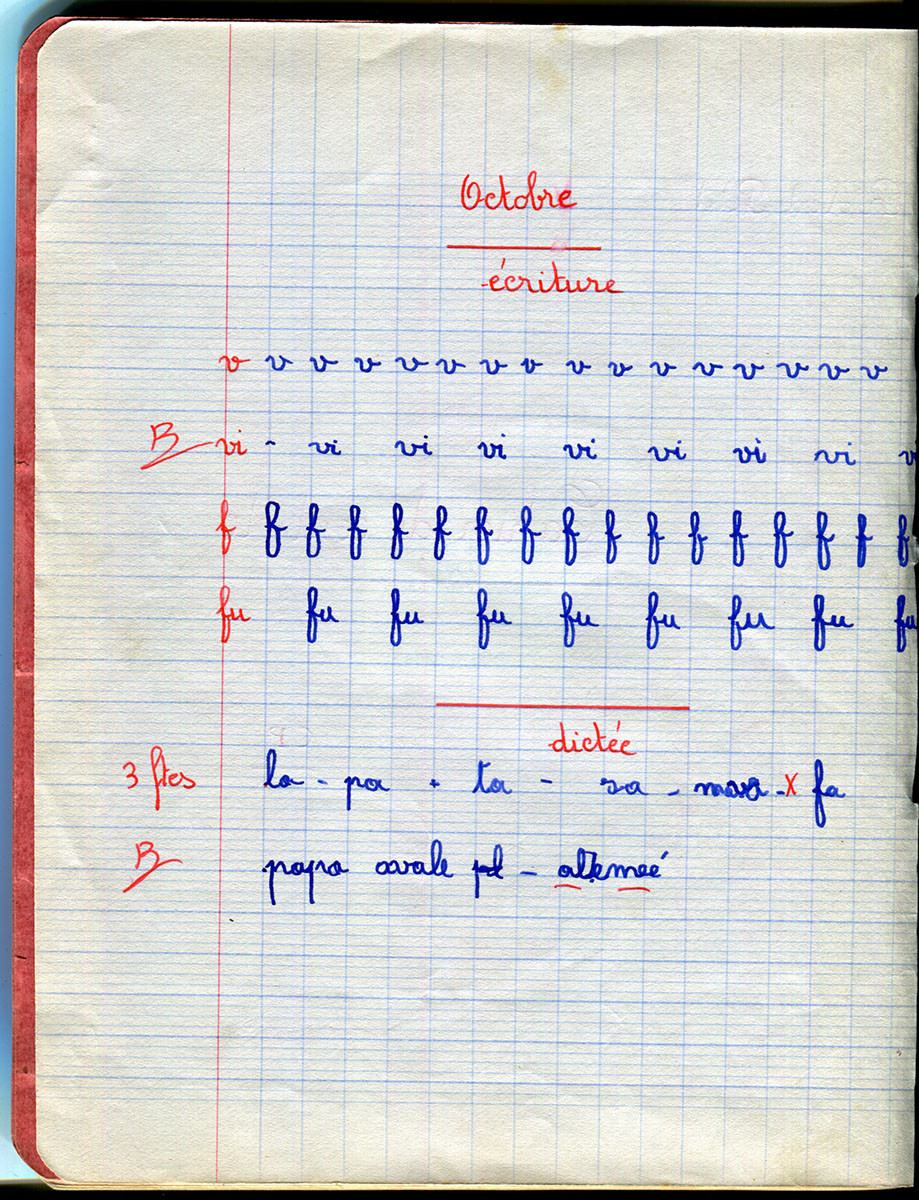 Octobre
écriture
v v v v v v v v v v v v v v v v
B vi - vi vi vi vi vi vi vi v
f f f f f f f f f f f f f f f f f
fu fu fu fu fu fu fu fu fu
dictée
3 ftes la - pa - ta - sa - - x fa
B papa avale -